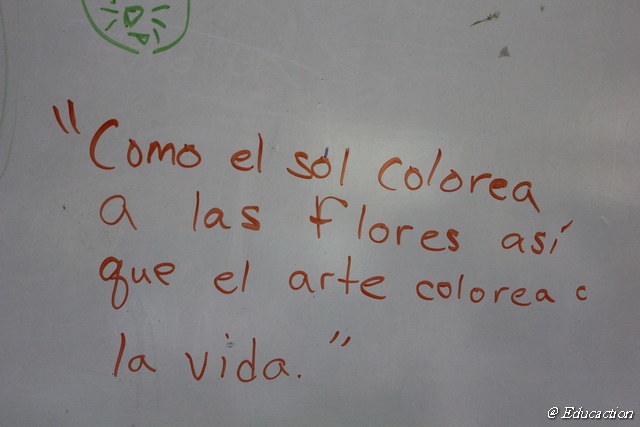 "Como el sól colorea
a las flores así
que el arte colorea c
la vida."
@ Educaction